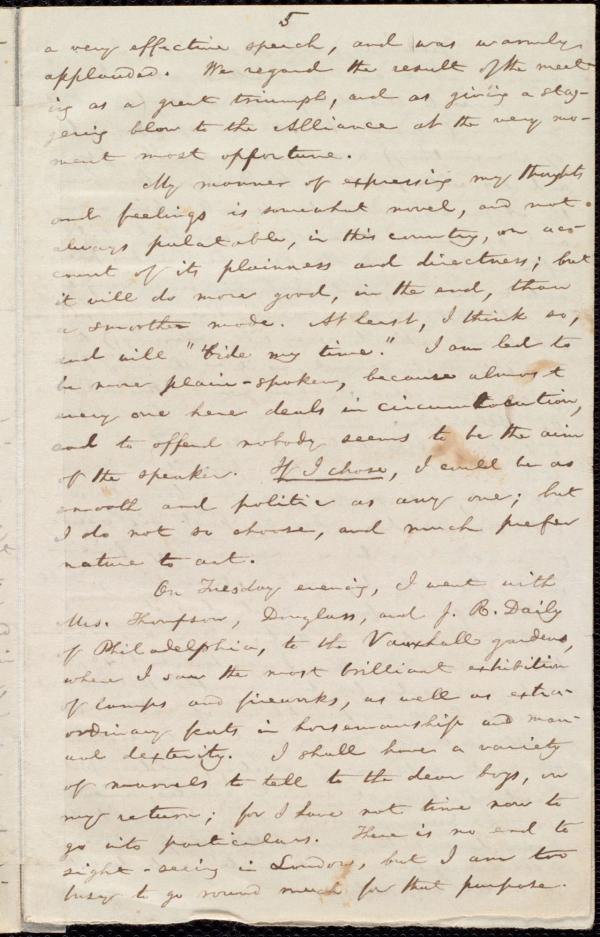 5
a very effective speech, and was warmly
applauded. We regard the result of the meet-
ing as a great triumph, and as giving a stag-
gering blow to the Alliance at the very mo-
ment most opportune.
My manner of expressing my thoughts
and feelings is somewhat novel, and not
always palatable, in this country, on ac-
count of its plainness and directness; but
it will do more good, in the end, than
a smoother mode. At least, I think so,
and will "bide my time." I am led to
be more plain-spoken, because almost
every one here deals in circumlocution,
and to offend nobody seems to be the aim
of the speaker. If I chose, I could be as
smooth and politic as any one; but
I do not so choose, and much prefer
nature to art.
On Tuesday evening, I went with
Mrs. Thompson, Douglass, and J. R. Daily
of Philadelphia, to the Vauxhall gardens,
where I saw the most brilliant exhibition
of lamps and fireworks, as well as extra-
ordinary feats in horsemanship and man-
ual dexterity. I shall have a variety
of marvels to tell to the dear boys, on
my return; for I have not time now to
go into particulars. There is no end to
sight-seeing in London, but I am too
busy to go round much for that purpose.